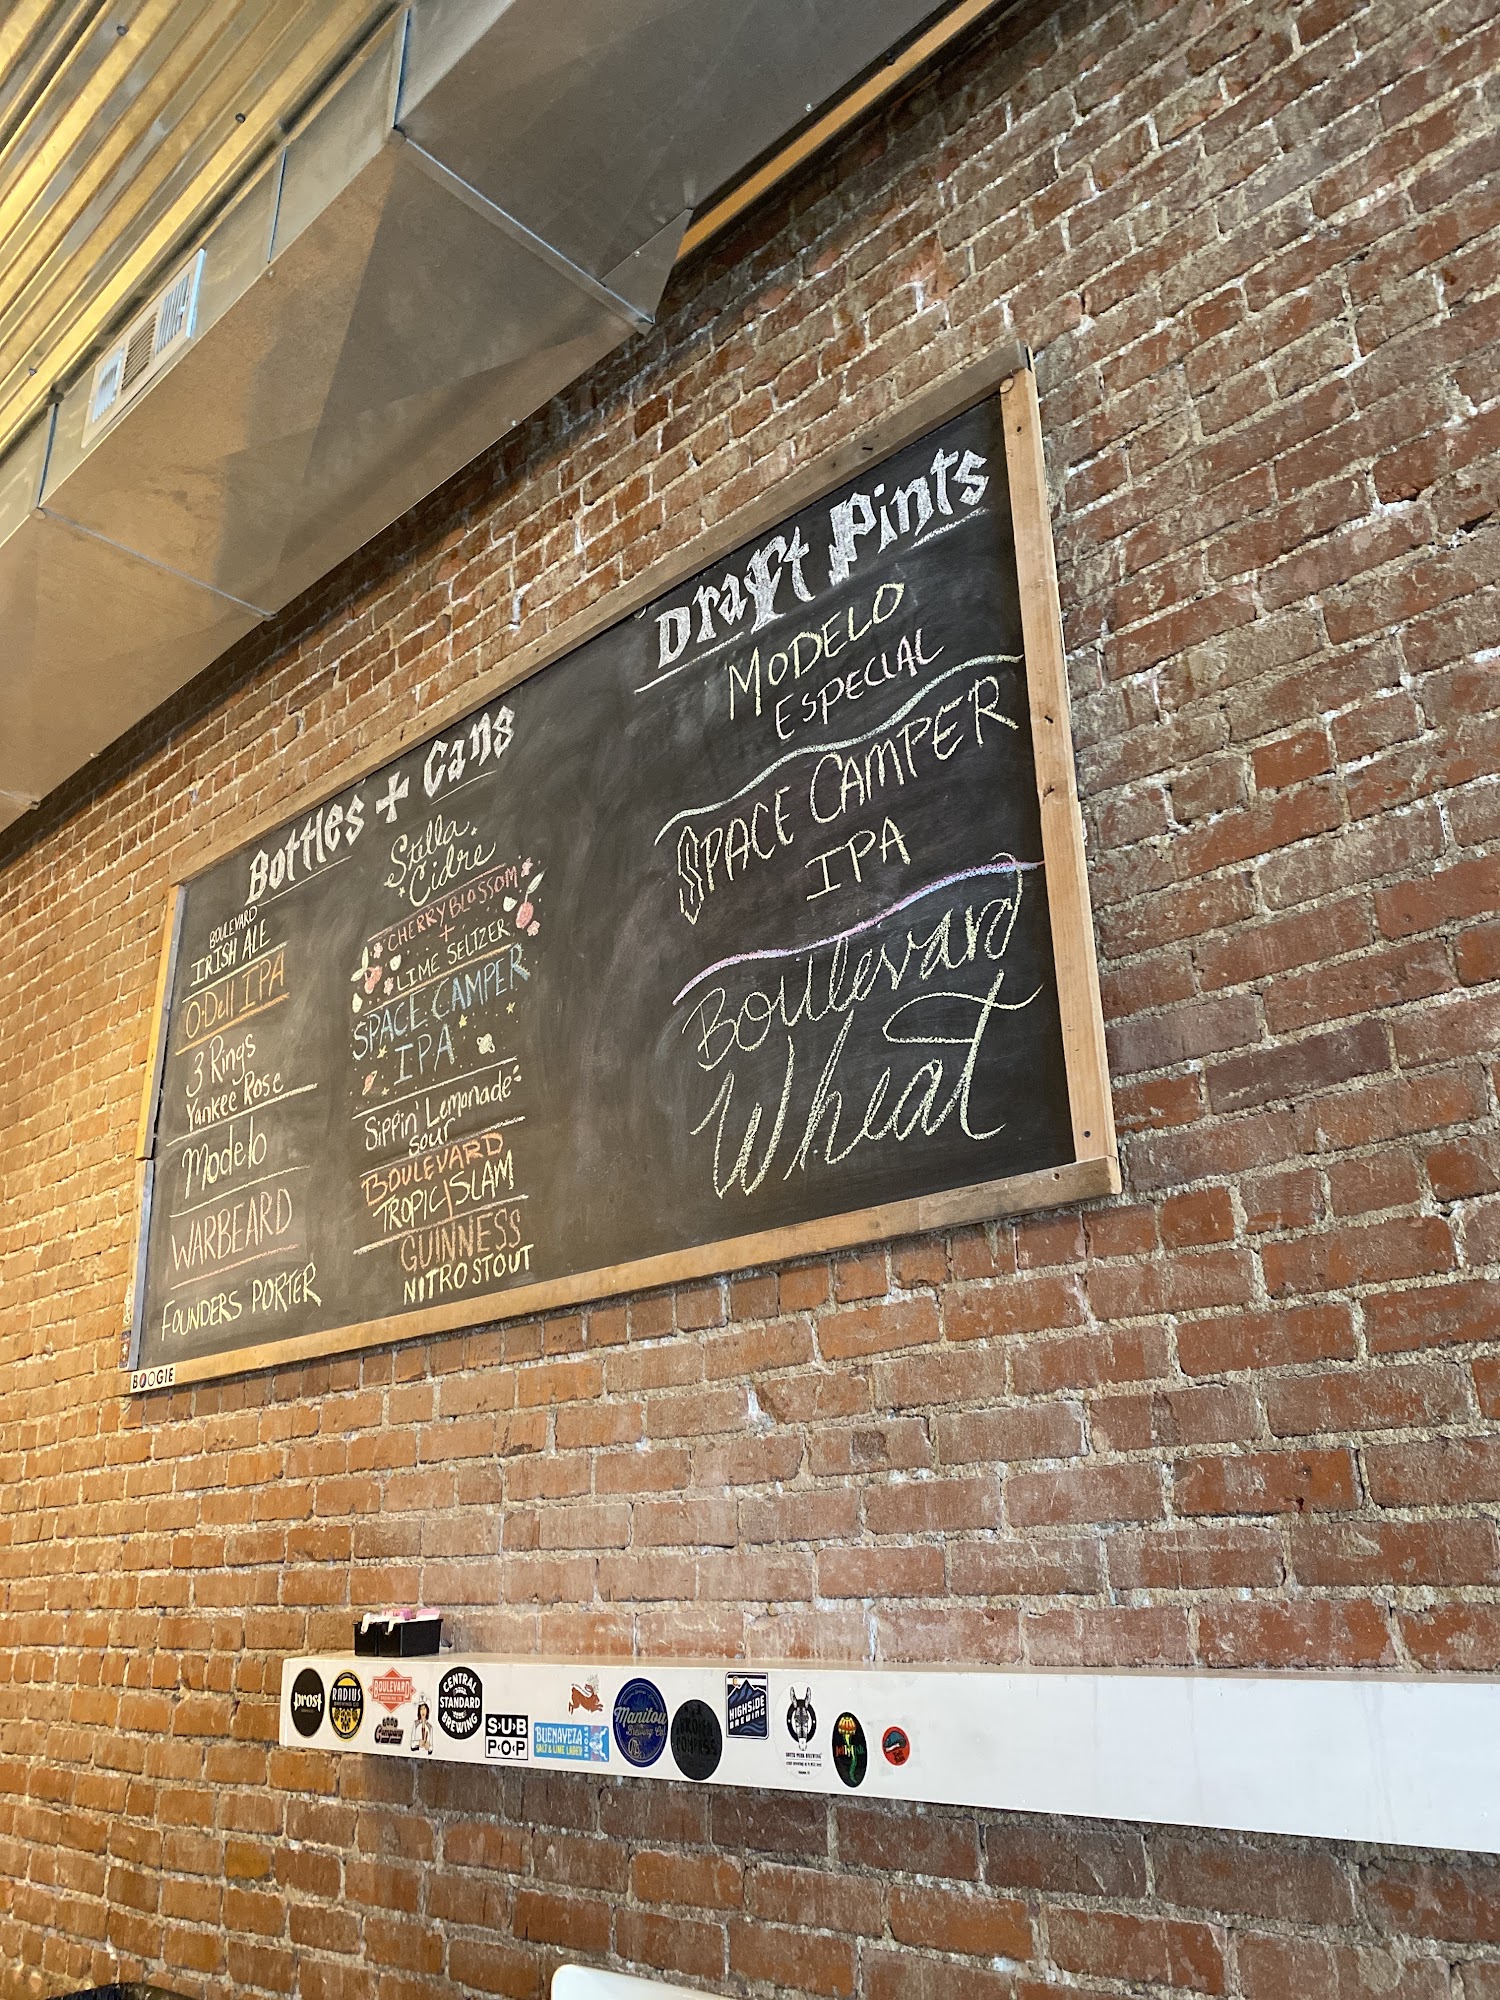 Bottles + Cans
BOULEVARD
IRISH ALE
O'Dell IPA
3 Rings
Yankee Rose
Modelo
WARBEARD
FOUNDERS PORTER
Stella
Cidre
CHERRY BLOSSOM
+
LIME SELTZER
SPACE CAMPER
IPA
Sippin' Lemonade
Sour
BOULEVARD
TROPIC SLAM
GUINNESS
NITRO STOUT
Draft Pints
MODELO
ESPECIAL
SPACE CAMPER
IPA
Boulevard
Wheat
BOOGIE
prost
RADIUS
BREWING CO
BOULEVARD
BREWING CO
GOOD
Company
CENTRAL
STANDARD
BREWING
SUB
POP
BUENAVEZA
SALT & LIME LAGER
STONE
Manitou
Brewing Co.
BROKEN
COMPASS
HIGHSIDE
BREWING
SOUTH PARK BREWING
Jellyfish